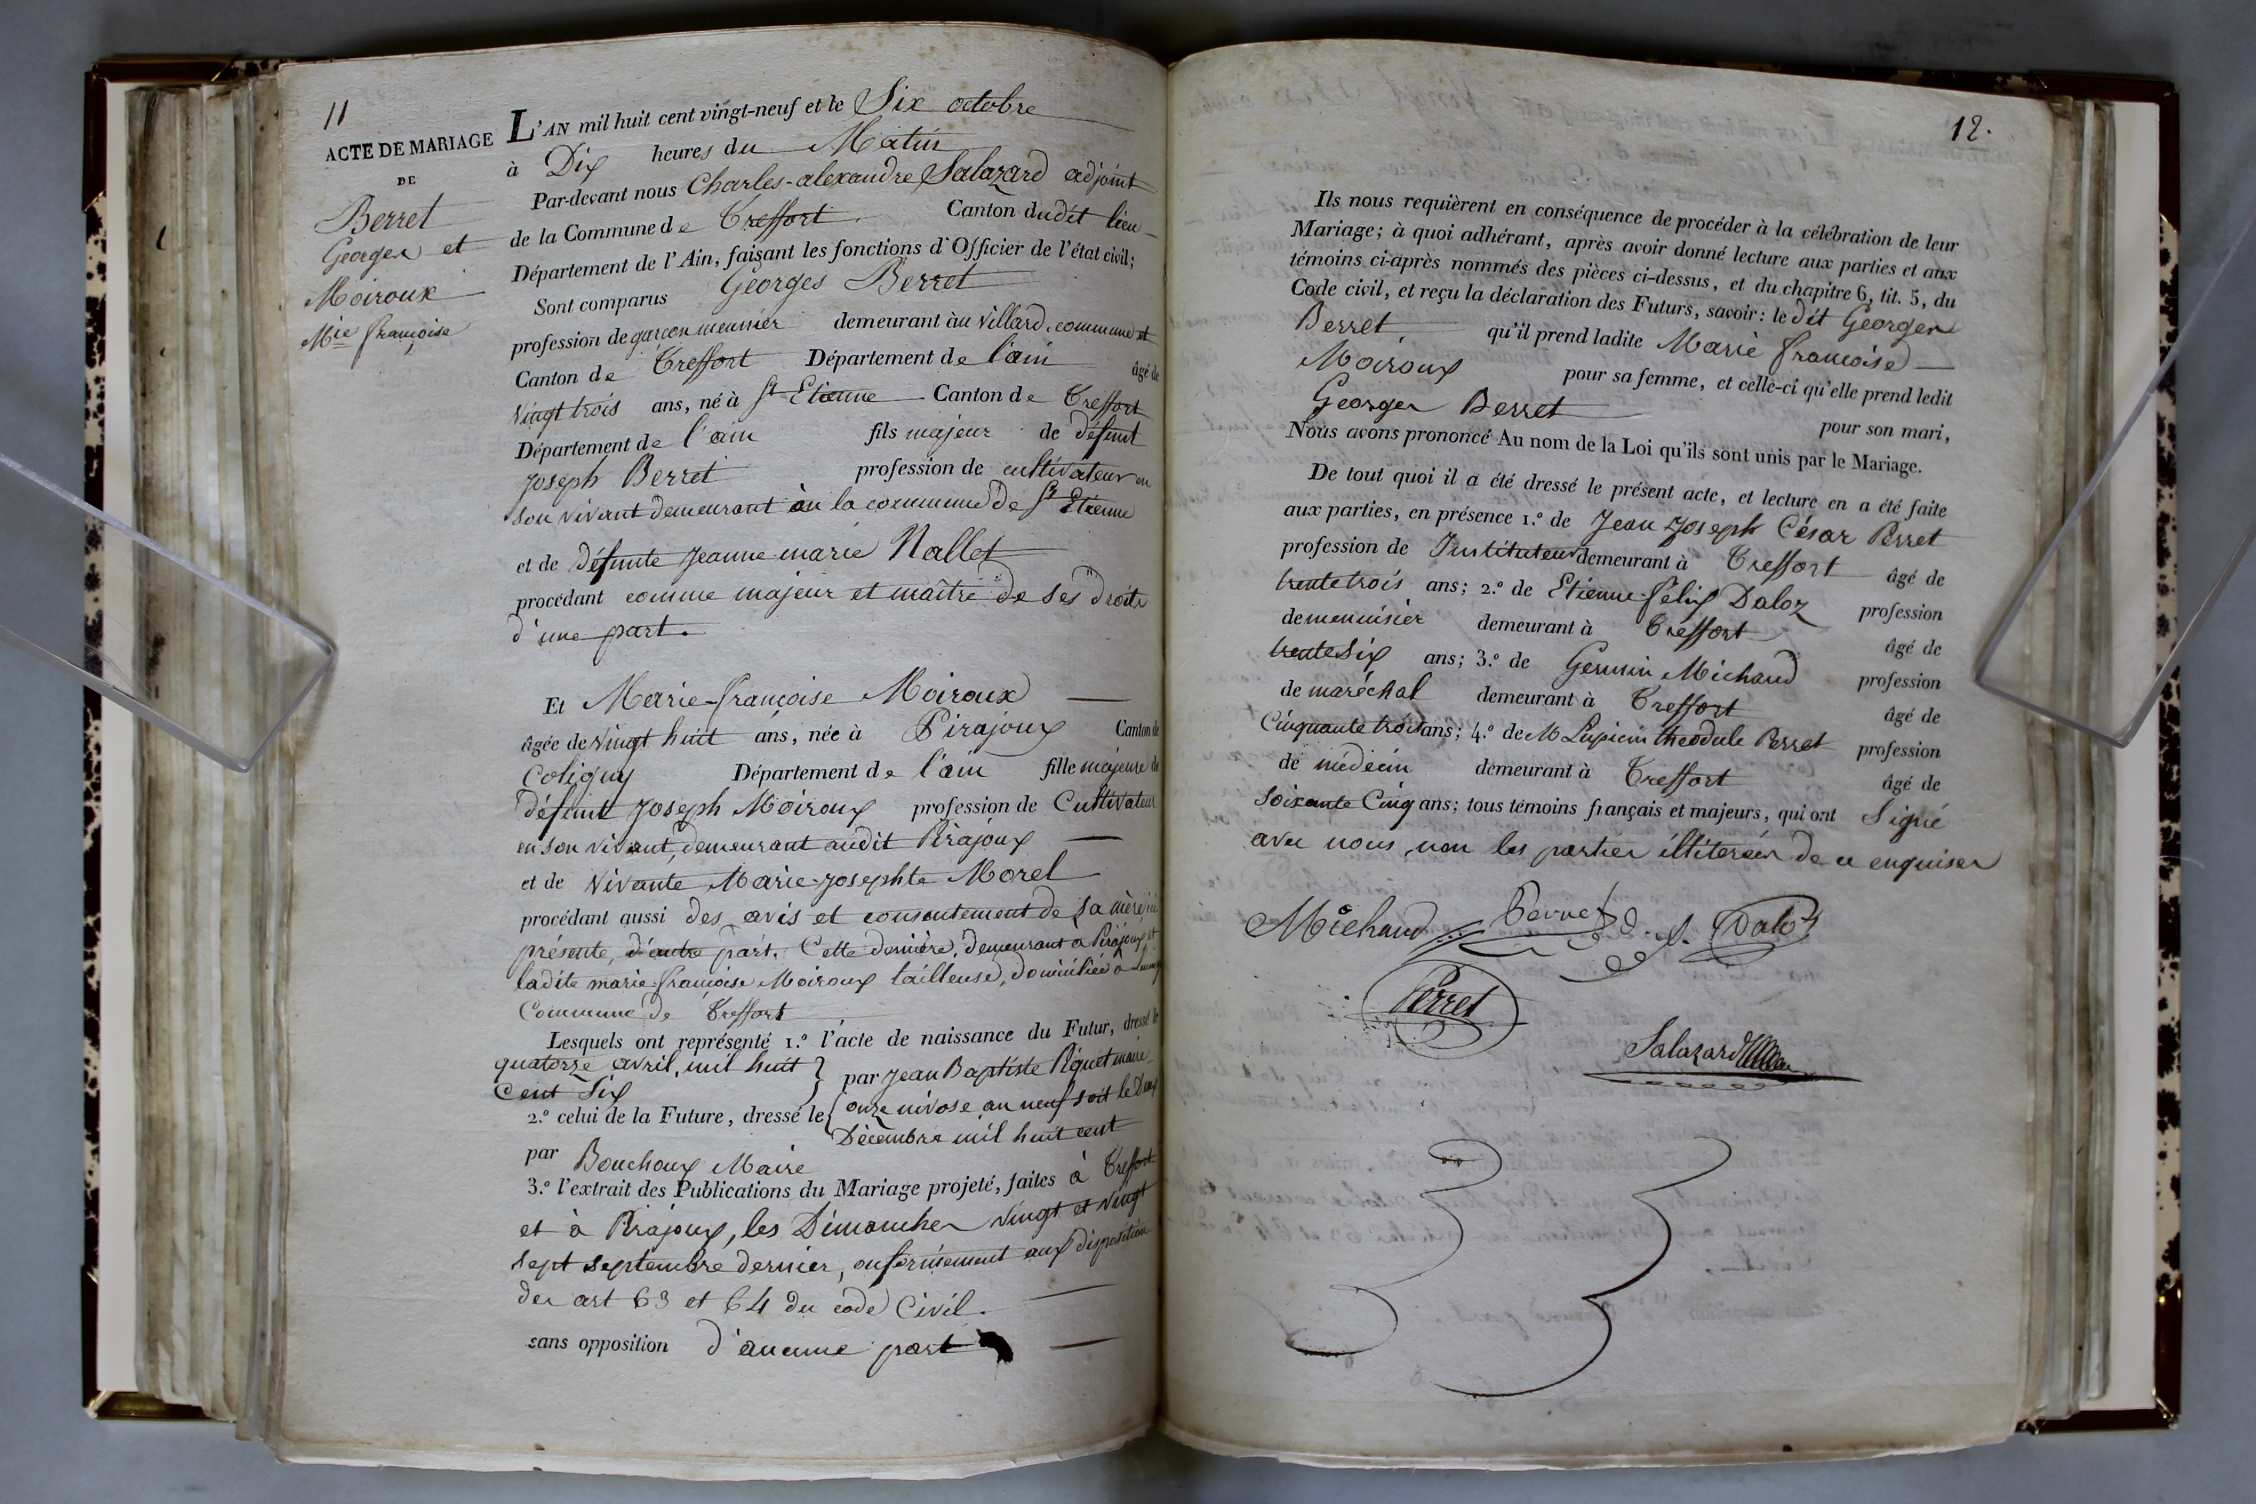 11
ACTE DE MARIAGE
DE
Berret
Georges et
Moiroux
Mie françoise
L'AN mil huit cent vingt-neuf et le Six octobre
à Dix heures du Matin
Par-devant nous Charles-alexandre Salazard adjoint
de la Commune de Treffort Canton dudit lieu
Département de l'Ain, faisant les fonctions d'Officier de l'état civil;
Sont comparus Georges Berret
profession de garçon meunier demeurant àu Villard, commune et
Canton de Treffort Département de l'ain âgé de
Vingt trois ans, né à St Etienne Canton de Treffort
Département de l'ain fils majeur de défunt
Joseph Berret profession de cultivateur en
son vivant demeurant en la commune de St Etienne
et de défunte Jeanne marie Nallet
procédant comme majeur et maître de ses droits
d'une part.
Et Marie-françoise Moiroux
âgée de vingt huit ans, née à Pirajoux Canton de
Coligny Département de l'ain fille majeure de
défunt Joseph Moiroux profession de Cultivateur
en son vivant, demeurant audit Pirajoux
et de Vivante Marie-Josephte Morel
procédant aussi des avis et consentement de sa mère ici
présente, d'autre part. Cette dernière, demeurant à Pirajoux, et
ladite marie-françoise Moiroux tailleuse, domiciliée à
Commune de Treffort
Lesquels ont représenté 1.º l'acte de naissance du Futur, dressé le
quatorze avril, mil huit } par Jean Baptiste Piquet maire
Cent Six
2.º celui de la Future, dressé le { onze nivose an neuf soit le Deux
Décembre mil huit cent
par Bouchoux Maire
3.º l'extrait des Publications du Mariage projeté, faites à Treffort
et à Pirajoux, les Dimanches vingt et vingt
sept septembre dernier, conformément aux disposition
des art 63 et 64 du code Civil.
sans opposition d'aucune part
12.
Ils nous requièrent en conséquence de procéder à la célébration de leur
Mariage; à quoi adhérant, après avoir donné lecture aux parties et aux
témoins ci-après nommés des pièces ci-dessus, et du chapitre 6, tit. 5, du
Code civil, et reçu la déclaration des Futurs, savoir: le dit Georges
Berret qu'il prend ladite Marie françoise
Moiroux pour sa femme, et celle-ci qu'elle prend ledit
Georges Berret pour son mari,
Nous avons prononcé Au nom de la Loi qu'ils sont unis par le Mariage.
De tout quoi il a été dressé le présent acte, et lecture en a été faite
aux parties, en présence 1.º de Jean Joseph César Perret
profession de Instituteur demeurant à Treffort âgé de
trente trois ans; 2.º de Etienne-félix Daloz profession
de menuisier demeurant à Treffort âgé de
trente six ans; 3.º de Germain Michaud profession
de maréchal demeurant à Treffort âgé de
Cinquante trois ans; 4.º de M Lupicin théodule Perret profession
de médecin demeurant à Treffort âgé de
soixante Cinq ans; tous témoins français et majeurs, qui ont Signé
avec nous, non les parties illiterées de ce enquises
Michaud Perret Daloz
Perret
Salazard